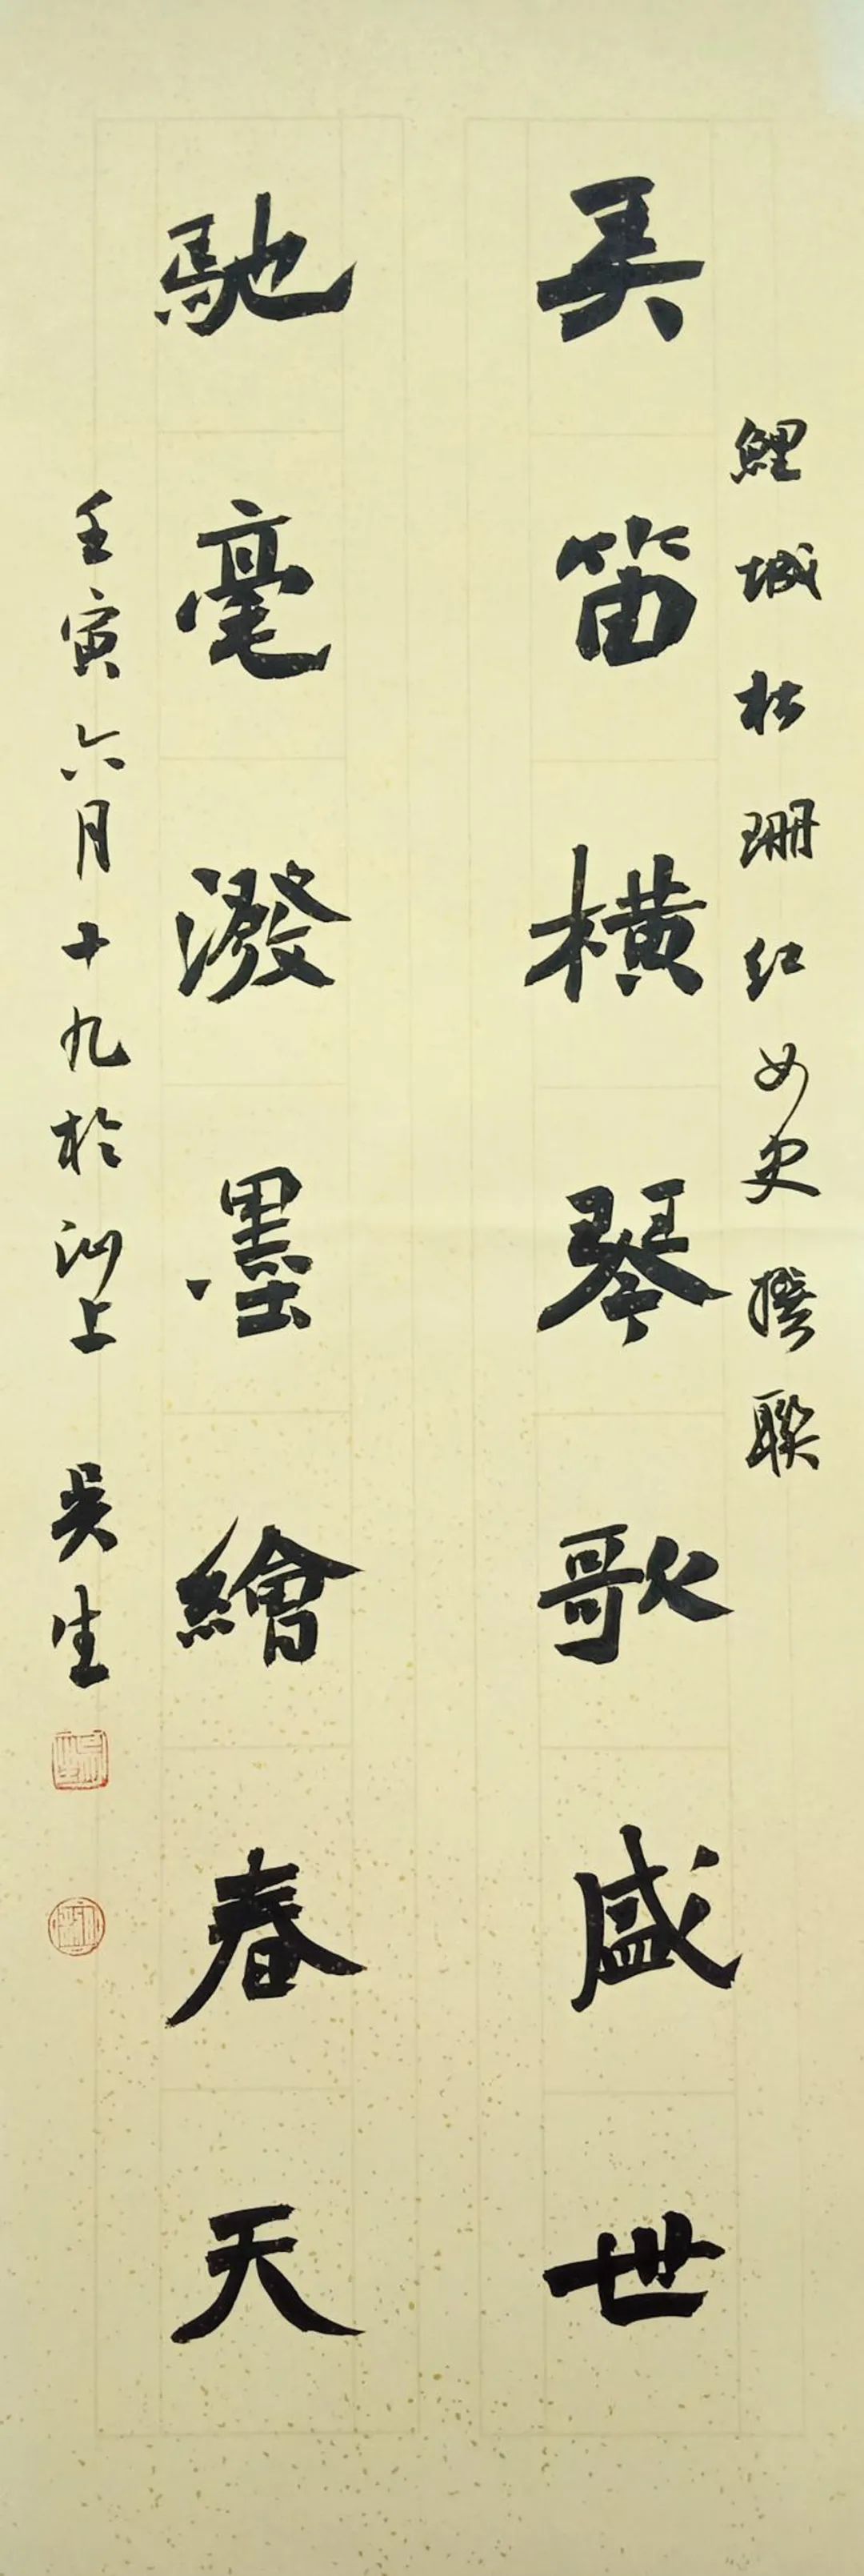 鯉城杜珊红女史撰聯
弄笛横琴歌盛世
馳毫潑墨繪春天
壬寅六月十九於汕上 吴生